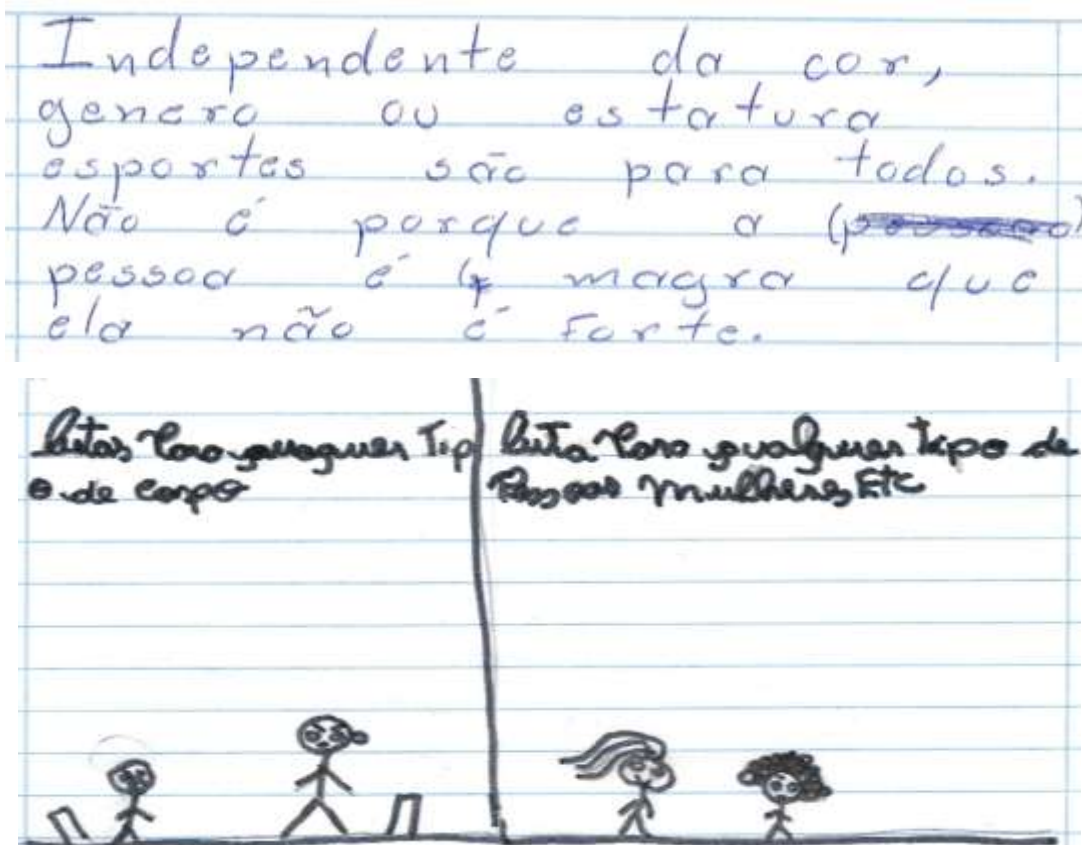 Independente da cor,
genero ou estatura
esportes são para todos.
Não é porque a
pessoa é magra que
ela não é forte.
lutas Para quaquer Tip
o de corpo
luta Para qualquer tipo de
Pessoas mulheres Etc